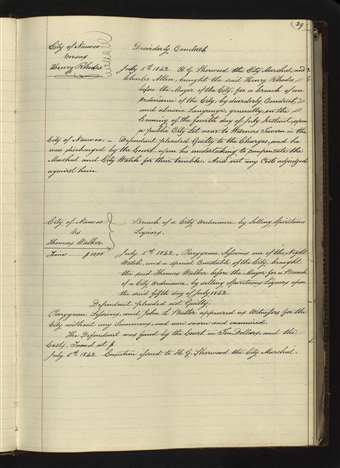 29
City of Nauvoo
versus
Henry Rhodes
Disorderly Conduct
July 5th 1842. H. G. Sherwood the City Marshal, and
Charles Allen, brought the said Henry Rhodes
before the Mayor of the City, for a breach of an
Ordinance of the City, by disorderly Conduct
and abusive Language, generally, on the
Evening of the fourth day of July instant, upon
a public City Lot near to Warner's Tavern in the
City of Nauvoo. – Defendant pleaded Guilty to the Charges, and he
was discharged by the Court, upon his undertaking to compensate the
Marshal and City Watch for their trouble. And not any Costs adjudged
against him
City of Nauvoo
vs
Thomas Walker
Fine $10.00
Breach of a City Ordinance, by Selling Spirituous
Liquors.
July 5th 1842. Perrygreen Sessions, one of the Night
Watch, and a special Constable of the City, brought
the said Thomas Walker before the Mayor for a Breach
of a City Ordinance, by selling Spirituous Liquors upon
the said fifth day of July 1842.
Defendant pleaded not Guilty.
Perrygreen Sessions, and John L. Butler appeared as Witnesses for the
City without any Summons, and were sworn and examined.
The Defendant was fined by the Court in Ten Dollars, and the
Costs. Taxed at $
July 6th 1842. Execution issued to H. G. Sherwood the City Marshal.